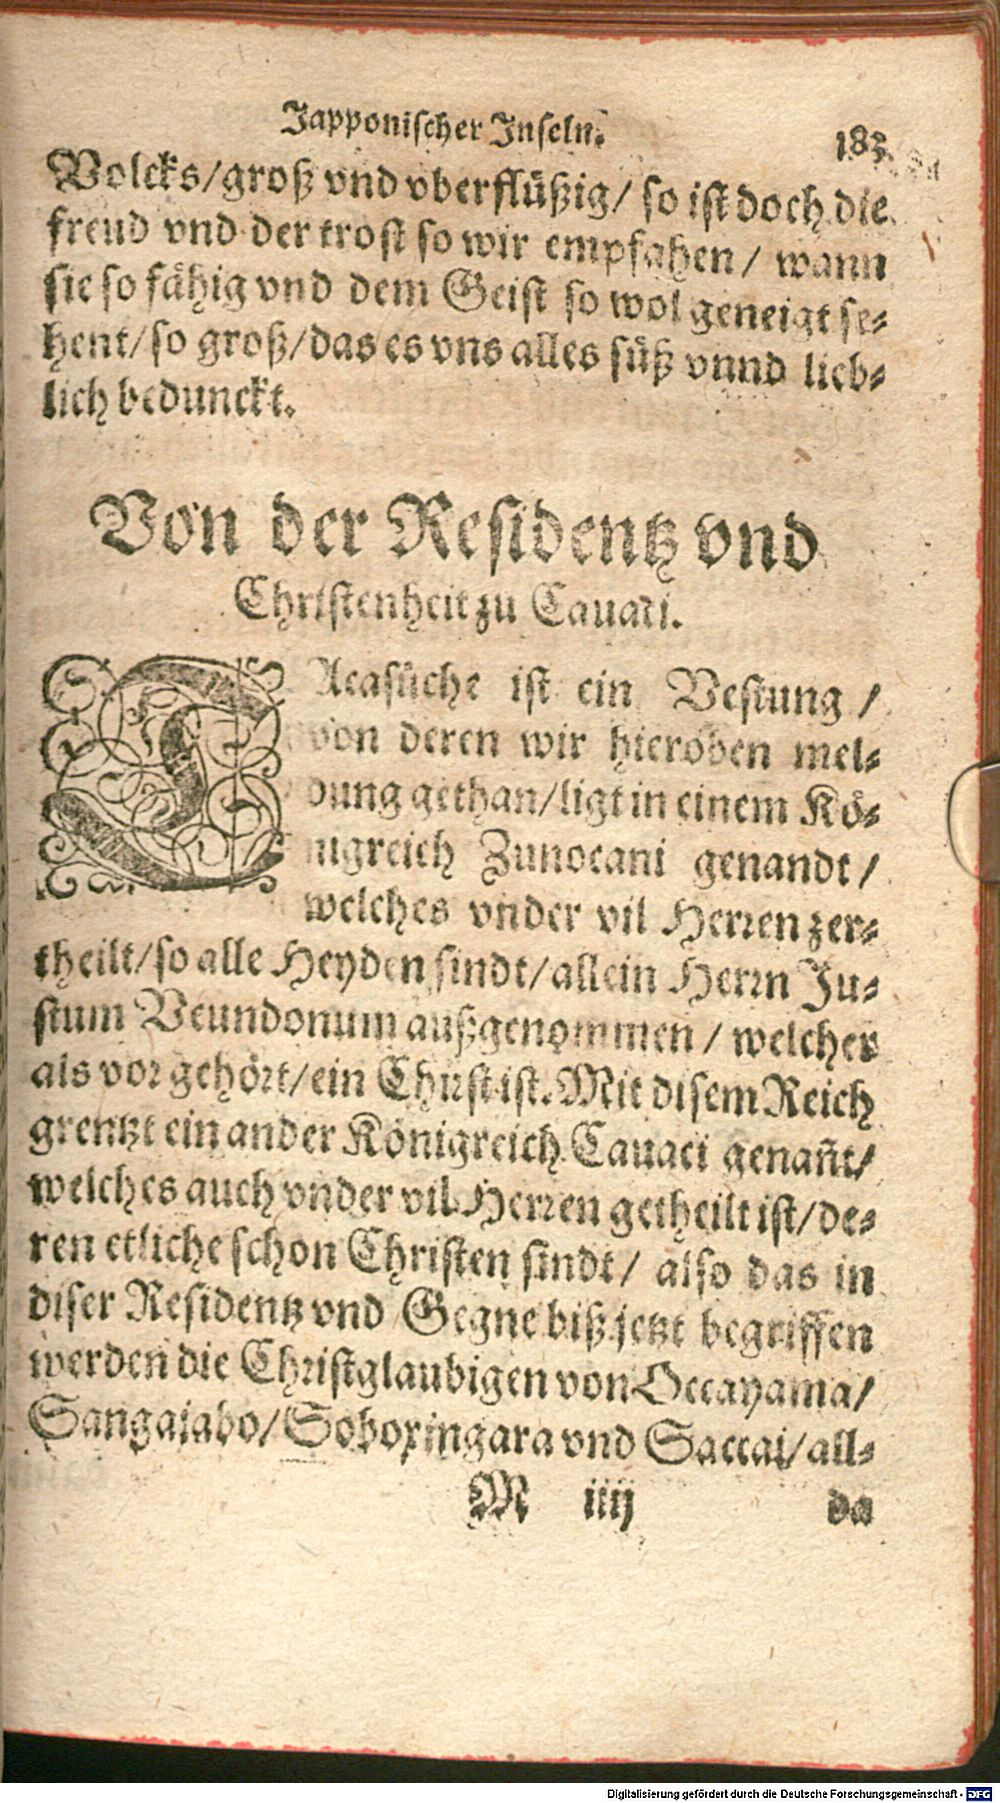 Japponischer Inseln.
183
Volcks/groß vnd vberflüßig/ so ist doch die
freud vnd der trost so wir empfahen/ wann
sie so fähig vnd dem Geist so wol geneigt se-
hent/so groß/das es vns alles süß vnnd lieb-
lich bedunckt.
Von der Residentz vnd
Christenheit zu Cauaci.
CAcasuche ist ein Vestung/
von deren wir hieroben mel-
dung gethan/ligt in einem Kö-
nigreich Zunocani genandt/
welches vnder vil Herren zer-
theilt/so alle Heyden sindt/allein Herrn Ju-
stum Veundonum außgenommen/ welcher
als vor gehört/ein Christ ist. Mit disem Reich
grentzt ein ander Königreich Cauaci genañt/
welches auch vnder vil Herren getheilt ist/de-
ren etliche schon Christen sindt/ also das in
diser Residentz vnd Gegne biß jetzt begriffen
werden die Christglaubigen von Occayama/
Sangajabo/Soboxingara vnd Saccai/all-
M iiij da
Digitalisierung gefördert durch die Deutsche Forschungsgemeinschaft - DFG